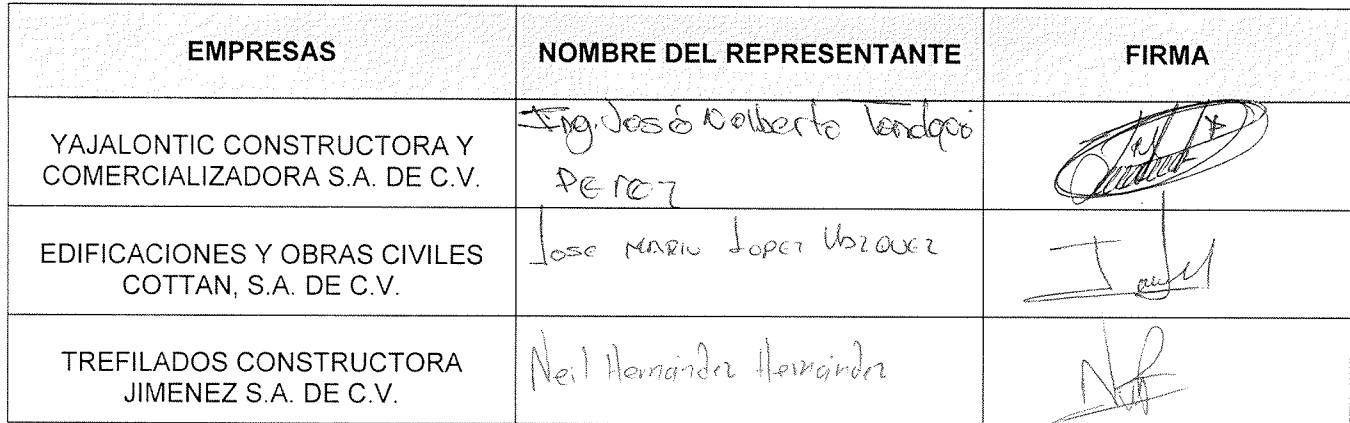 EMPRESAS NOMBRE DEL REPRESENTANTE FIRMA
YAJALONTIC CONSTRUCTORA Y
COMERCIALIZADORA S.A. DE C.V.
Ing. José
PEREZ
EDIFICACIONES Y OBRAS CIVILES
COTTAN, S.A. DE C.V.
Jose MARIA LOPEZ VAZQUEZ
TREFILADOS CONSTRUCTORA
JIMENEZ S.A. DE C.V.
Neil Hernández Hernández